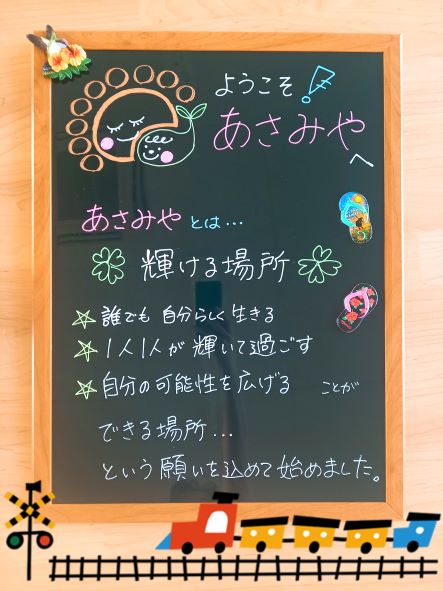 ようこそ!
あさみや
へ
あさみやとは…
輝ける場所
誰でも 自分らしく生きる
1人1人が輝いて過ごす
自分の可能性を広げる ことが
できる場所…
という願いを込めて始めました。